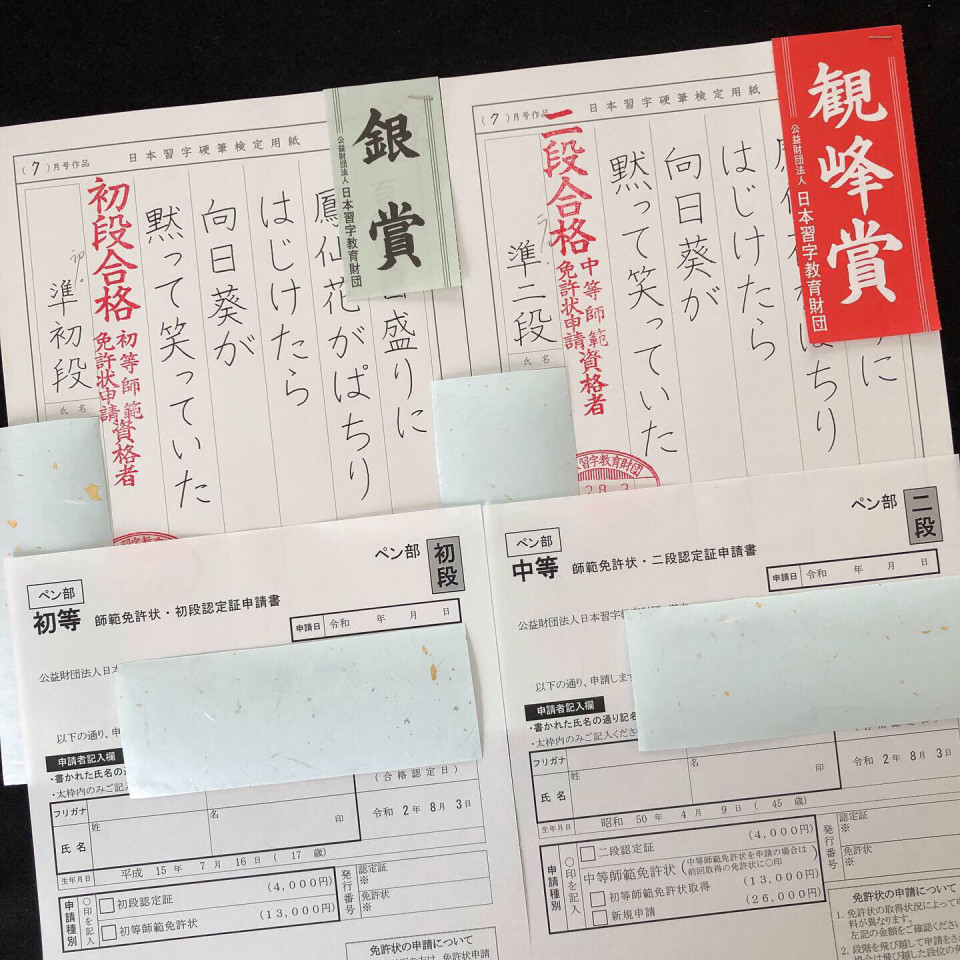 (7)月号作品
日本習字硬筆検定用紙
銀賞
公益財団法人 日本習字教育財団
盛りに
鳳仙花がぱちり
はじけたら
向日葵が
黙って笑っていた
初段合格
初等師範資格者
免許状申請
準初段
氏名
(7)月号作品
日本習字硬筆検定用紙
観峰賞
公益財団法人 日本習字教育財団
に
ぱちり
はじけたら
向日葵が
黙って笑っていた
二段合格
中等師範資格者
免許状申請
準二段
氏名
習字教育財団
28.3
ペン部
初等
師範免許状・初段認定証申請書
ペン部
初段
申請日 令和 年 月 日
公益財団法人日本
以下の通り、申
申請者記入欄
・書かれた氏名の通
・太枠内のみご記
フリガナ
氏名
姓
名
印
(合格認定日)
令和 2年 8月 3日
生年月日
平成 15年 7月 16日 (17歳)
申請種別
○印を記入
初段認定証 (4,000円)
初等師範免許状 (13,000円)
発行番号
認定証
※
免許状
※
免許状の申請について
ペン部
中等
師範免許状・二段認定証申請書
ペン部
二段
申請日 令和 年 月 日
公益財団法人日本習字
以下の通り、申請しま
申請者記入欄
・書かれた氏名の通り記名
・太枠内のみご記入くださ
フリガナ
氏名
姓
名
印
(合格認定日)
令和 2年 8月 3日
生年月日
昭和 50年 4月 9日 (45歳)
申請種別
○印を記入
二段認定証 (4,000円)
中等師範免許状(中等師範免許状を申請の場合は前回取得の免許状に○印)
初等師範免許状取得 (13,000円)
新規申請 (26,000円)
発行番号
認定証
※
免許状
※
免許状の申請について
1. 免許状の取得状況によって申
料が異なります。
左記の金額をご確認ください
2. 段階を飛び越して申請をさ